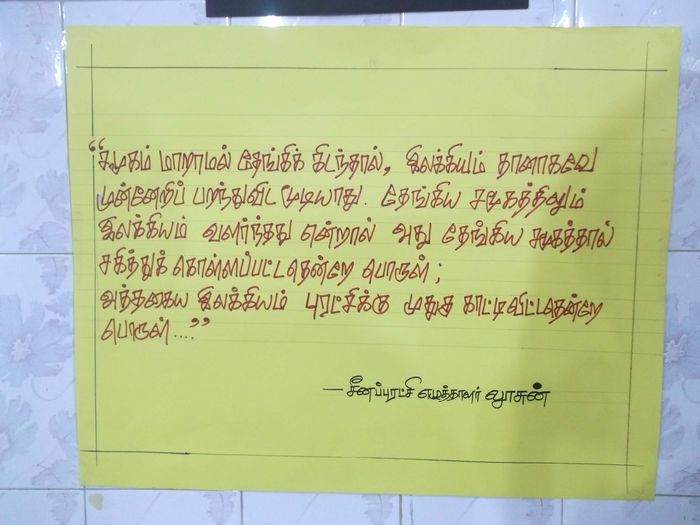 “சமூகம் மாறாமல் தேங்கிக் கிடந்தால், இலக்கியம் தானாகவே
முன்னேறிப் பறந்துவிட முடியாது. தேங்கிய சமூகத்திலும்
இலக்கியம் வளர்ந்தது என்றால் அது தேங்கிய சமூகத்தால்
சகித்துக் கொள்ளப்பட்டதென்றே பொருள் ;
அத்தகைய இலக்கியம் புரட்சிக்கு முதுகு காட்டிவிட்டதென்றே
பொருள் ....”
— சீனப்புரட்சி எழுத்தாளர் லூசுன்